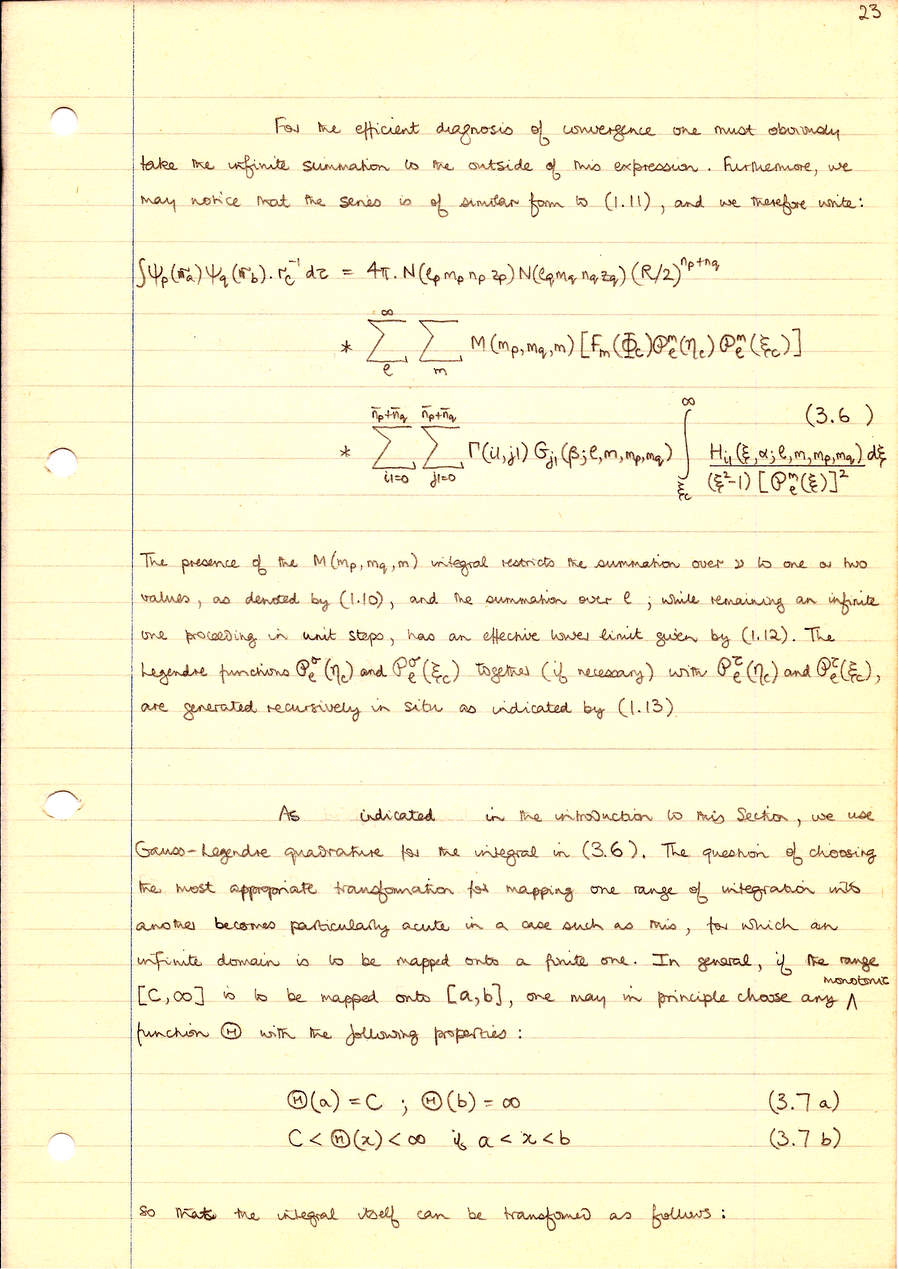 23
For the efficient diagnosis of convergence one must obviously
take the infinite summation to the outside of this expression. Furthermore, we
may notice that the series is of similar form to (1.11), and we therefore write:
∫Ψp(r⃗a)Ψq(r⃗b).rc⁻¹dτ = 4π.N(lp mp np zp)N(lq mq nq zq)(R/2)^(np+nq)
* ∑_l^∞ ∑_m M(mp,mq,m)[Fm(Φc)𝒫_l^m(ηc)𝒫_l^m(ξc)]
* ∑_{i1=0}^{n̄p+n̄q} ∑_{j1=0}^{n̄p+n̄q} Γ(i1,j1) G_{j1}(β;l,m,mp,mq) ∫_{ξc}^∞ H_{i1}(ξ,α;l,m,mp,mq)dξ / (ξ²-1)[𝒫_l^m(ξ)]² (3.6)
The presence of the M(mp,mq,m) integral restricts the summation over ν to one or two
values, as denoted by (1.10), and the summation over l; while remaining an infinite
one proceeding in unit steps, has an effective lower limit given by (1.12). The
Legendre functions 𝒫_l^σ(ηc) and 𝒫_l^σ(ξc) together (if necessary) with 𝒫_l^τ(ηc) and 𝒫_l^τ(ξc),
are generated recursively in situ as indicated by (1.13)
As indicated in the introduction to this Section, we use
Gauss-Legendre quadrature for the integral in (3.6). The question of choosing
the most appropriate transformation for mapping one range of integration into
another becomes particularly acute in a case such as this, for which an
infinite domain is to be mapped onto a finite one. In general, if the range
[C,∞] is to be mapped onto [a,b], one may in principle choose any ⋀ monotonic
function Ⓗ with the following properties:
Ⓗ(a) = C ; Ⓗ(b) = ∞ (3.7 a)
C < Ⓗ(x) < ∞ if a < x < b (3.7 b)
So that the integral itself can be transformed as follows: